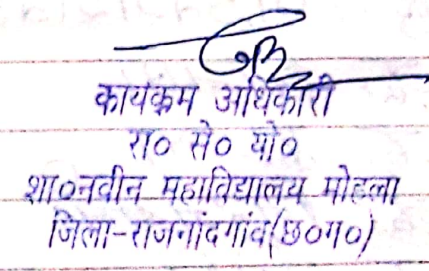 कार्यक्रम अधिकारी
रा० से० यो०
शा०नवीन महाविद्यालय मोहला
जिला-राजनांदगांव(छ०ग०)